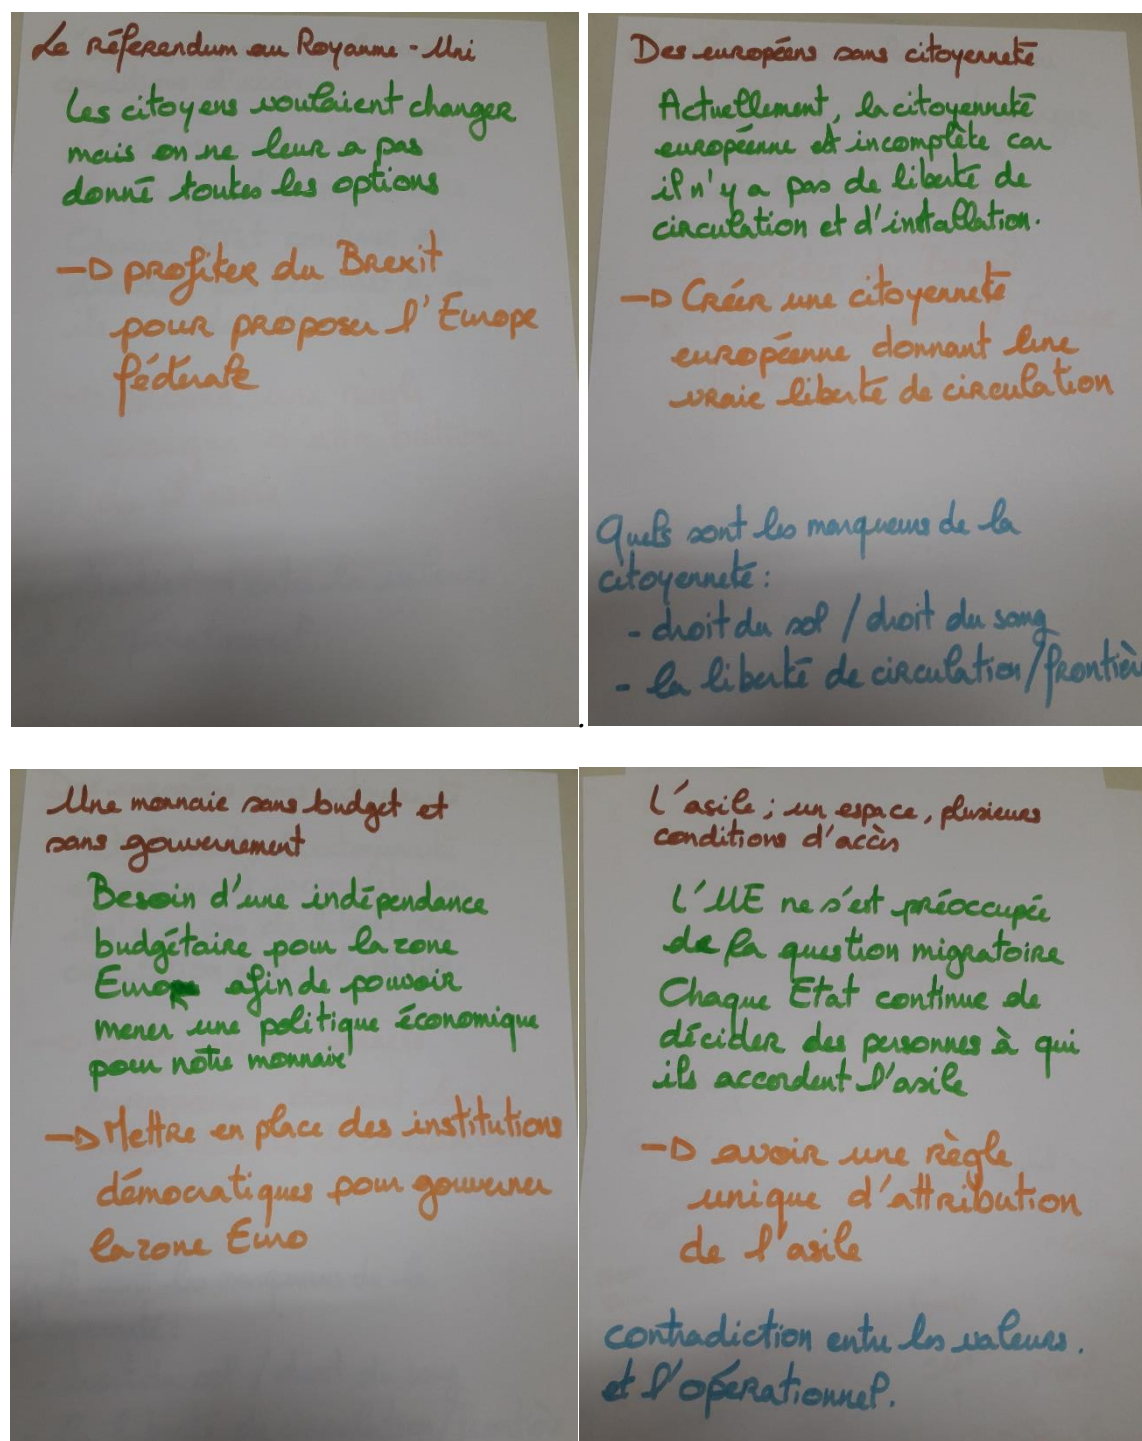 Le Référendum au Royaume-Uni
Les citoyens voulaient changer
mais on ne leur a pas
donné toutes les options
→ profiter du Brexit
pour proposer l'Europe
fédérale
Des européens sans citoyenneté
Actuellement, la citoyenneté
européenne est incomplète car
il n'y a pas de liberté de
circulation et d'installation.
→ Créer une citoyenneté
européenne donnant une
vraie liberté de circulation
Quels sont les marqueurs de la
citoyenneté :
- droit du sol / droit du sang
- la liberté de circulation / frontièr
Une monnaie sans budget et
sans gouvernement
Besoin d'une indépendance
budgétaire pour la zone
Euro afin de pouvoir
mener une politique économique
pour notre monnaie
→ Mettre en place des institutions
démocratiques pour gouverner
la zone Euro
L'asile ; un espace, plusieurs
conditions d'accès
L'UE ne s'est préoccupée
de la question migratoire
Chaque Etat continue de
décider des personnes à qui
ils accordent l'asile
→ avoir une règle
unique d'attribution
de l'asile
contradiction entre les valeurs.
et l'opérationnel.